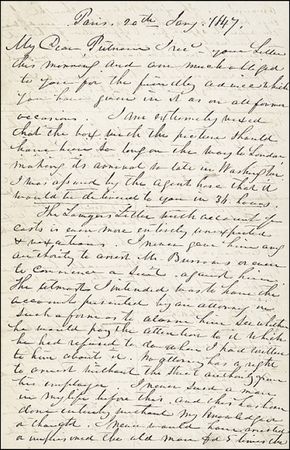 Paris. 20th Jany. 1847.
My Dear Putnam I recd. your Letter
this morning and am much obliged
to you for the friendly advice which
you have given in it as on all former
occasions. I am extremely vexed
that the box with the picture should
have been so long on the way to London
making its arrival so late in Washington
I was assured by the agent here that it
would be delivered to you in 36 hours.
The Lawyers Letter with account of
costs is even more entirely unexpected
& vexatious. I never gave him any
authority to arrest Mr. or even
to commence a suit against him.
The utmost I intended was to have the
account presented by an attorney in
such a form as to alarm him & see whether
he would pay the attention to it which
he had refused to do when I had written
to him about it. No attorney has a right
to arrest without the strict authority from
his employer. I never sued a man
in my life before this, and this has been
done entirely without my knowledge
or thought. I never would have arrested
or imprisoned the old man for 5 times the